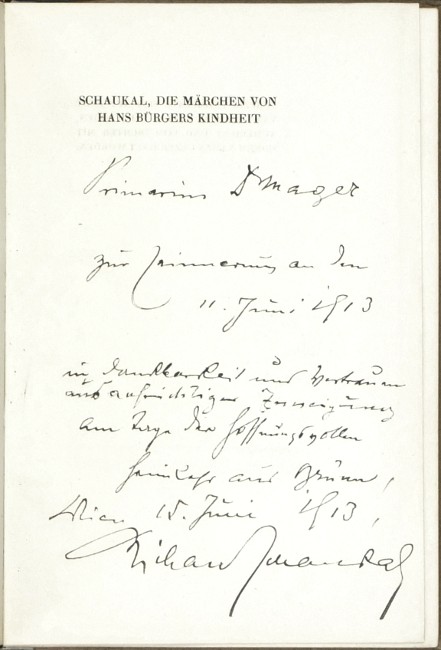 SCHAUKAL, DIE MÄRCHEN VON
HANS BÜRGERS KINDHEIT
Primarius Dr Mager
zur Erinnerung an den
11. Juni 1913
in Dankbarkeit und Vertrauen
aus aufrichtiger Zuneigung
am Tage der hoffnungsvollen
Heimkehr aus Brünn,
Wien 15. Juni 1913,
Richard Schaukal